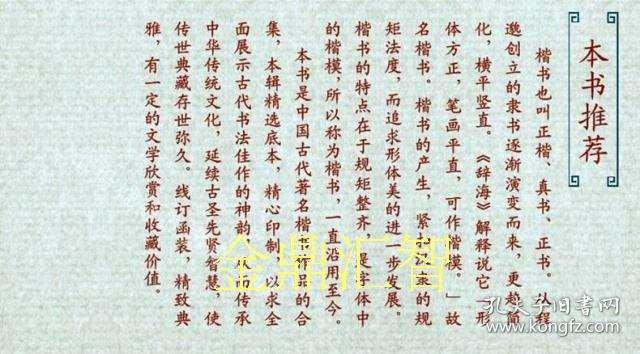 本书推荐
楷书也叫正楷、真书、正书。从程
邈创立的隶书逐渐演变而来，更趋简
化，横平竖直。《辞海》解释说它“形
体方正，笔画平直，可作楷模。”故
名楷书。楷书的产生，紧隶的规
矩法度，而追求形体美的进一步发展。
楷书的特点在于规矩整齐，是字体中
的楷模，所以称为楷书，一直沿用至今。
本书是中国古代著名楷书作品的合
集，本辑精选底本，精心印制，以求全
面展示古代书法佳作的神韵，传承
中华传统文化，延续古圣先贤智慧，使
传世典藏存世弥久。线订函装，精致典
雅，有一定的文学欣赏和收藏价值。
金鼎汇智
孔夫子旧书网
www.kongfz.com